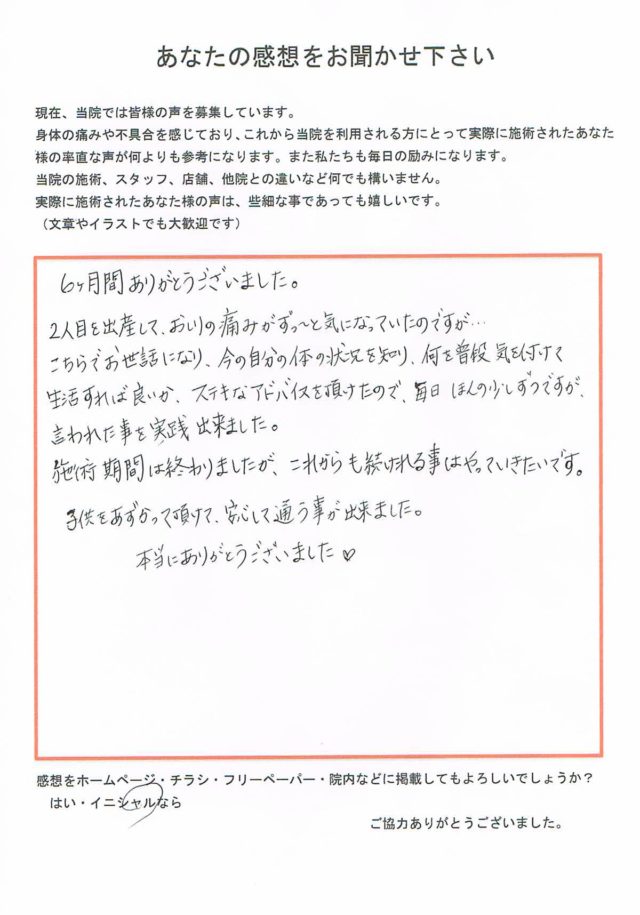 あなたの感想をお聞かせ下さい
現在、当院では皆様の声を募集しています。
身体の痛みや不具合を感じており、これから当院を利用される方にとって実際に施術されたあなた
様の率直な声が何よりも参考になります。また私たちも毎日の励みになります。
当院の施術、スタッフ、店舗、他院との違いなど何でも構いません。
実際に施術されたあなた様の声は、些細な事であっても嬉しいです。
（文章やイラストでも大歓迎です）
6ヶ月間ありがとうございました。
2人目を出産して、おしりの痛みがずっ〜と気になっていたのですが…
こちらでお世話になり、今の自分の体の状況を知り、何を普段気を付けて
生活すれば良いか、ステキなアドバイスを頂けたので、毎日ほんの少しずつですが、
言われた事を実践出来ました。
施術期間は終わりましたが、これからも続けれる事はやっていきたいです。
子供をあずかって頂けて、安心して通う事が出来ました。
本当にありがとうございました♡
感想をホームページ・チラシ・フリーペーパー・院内などに掲載してもよろしいでしょうか？
はい・イニシャルなら
ご協力ありがとうございました。